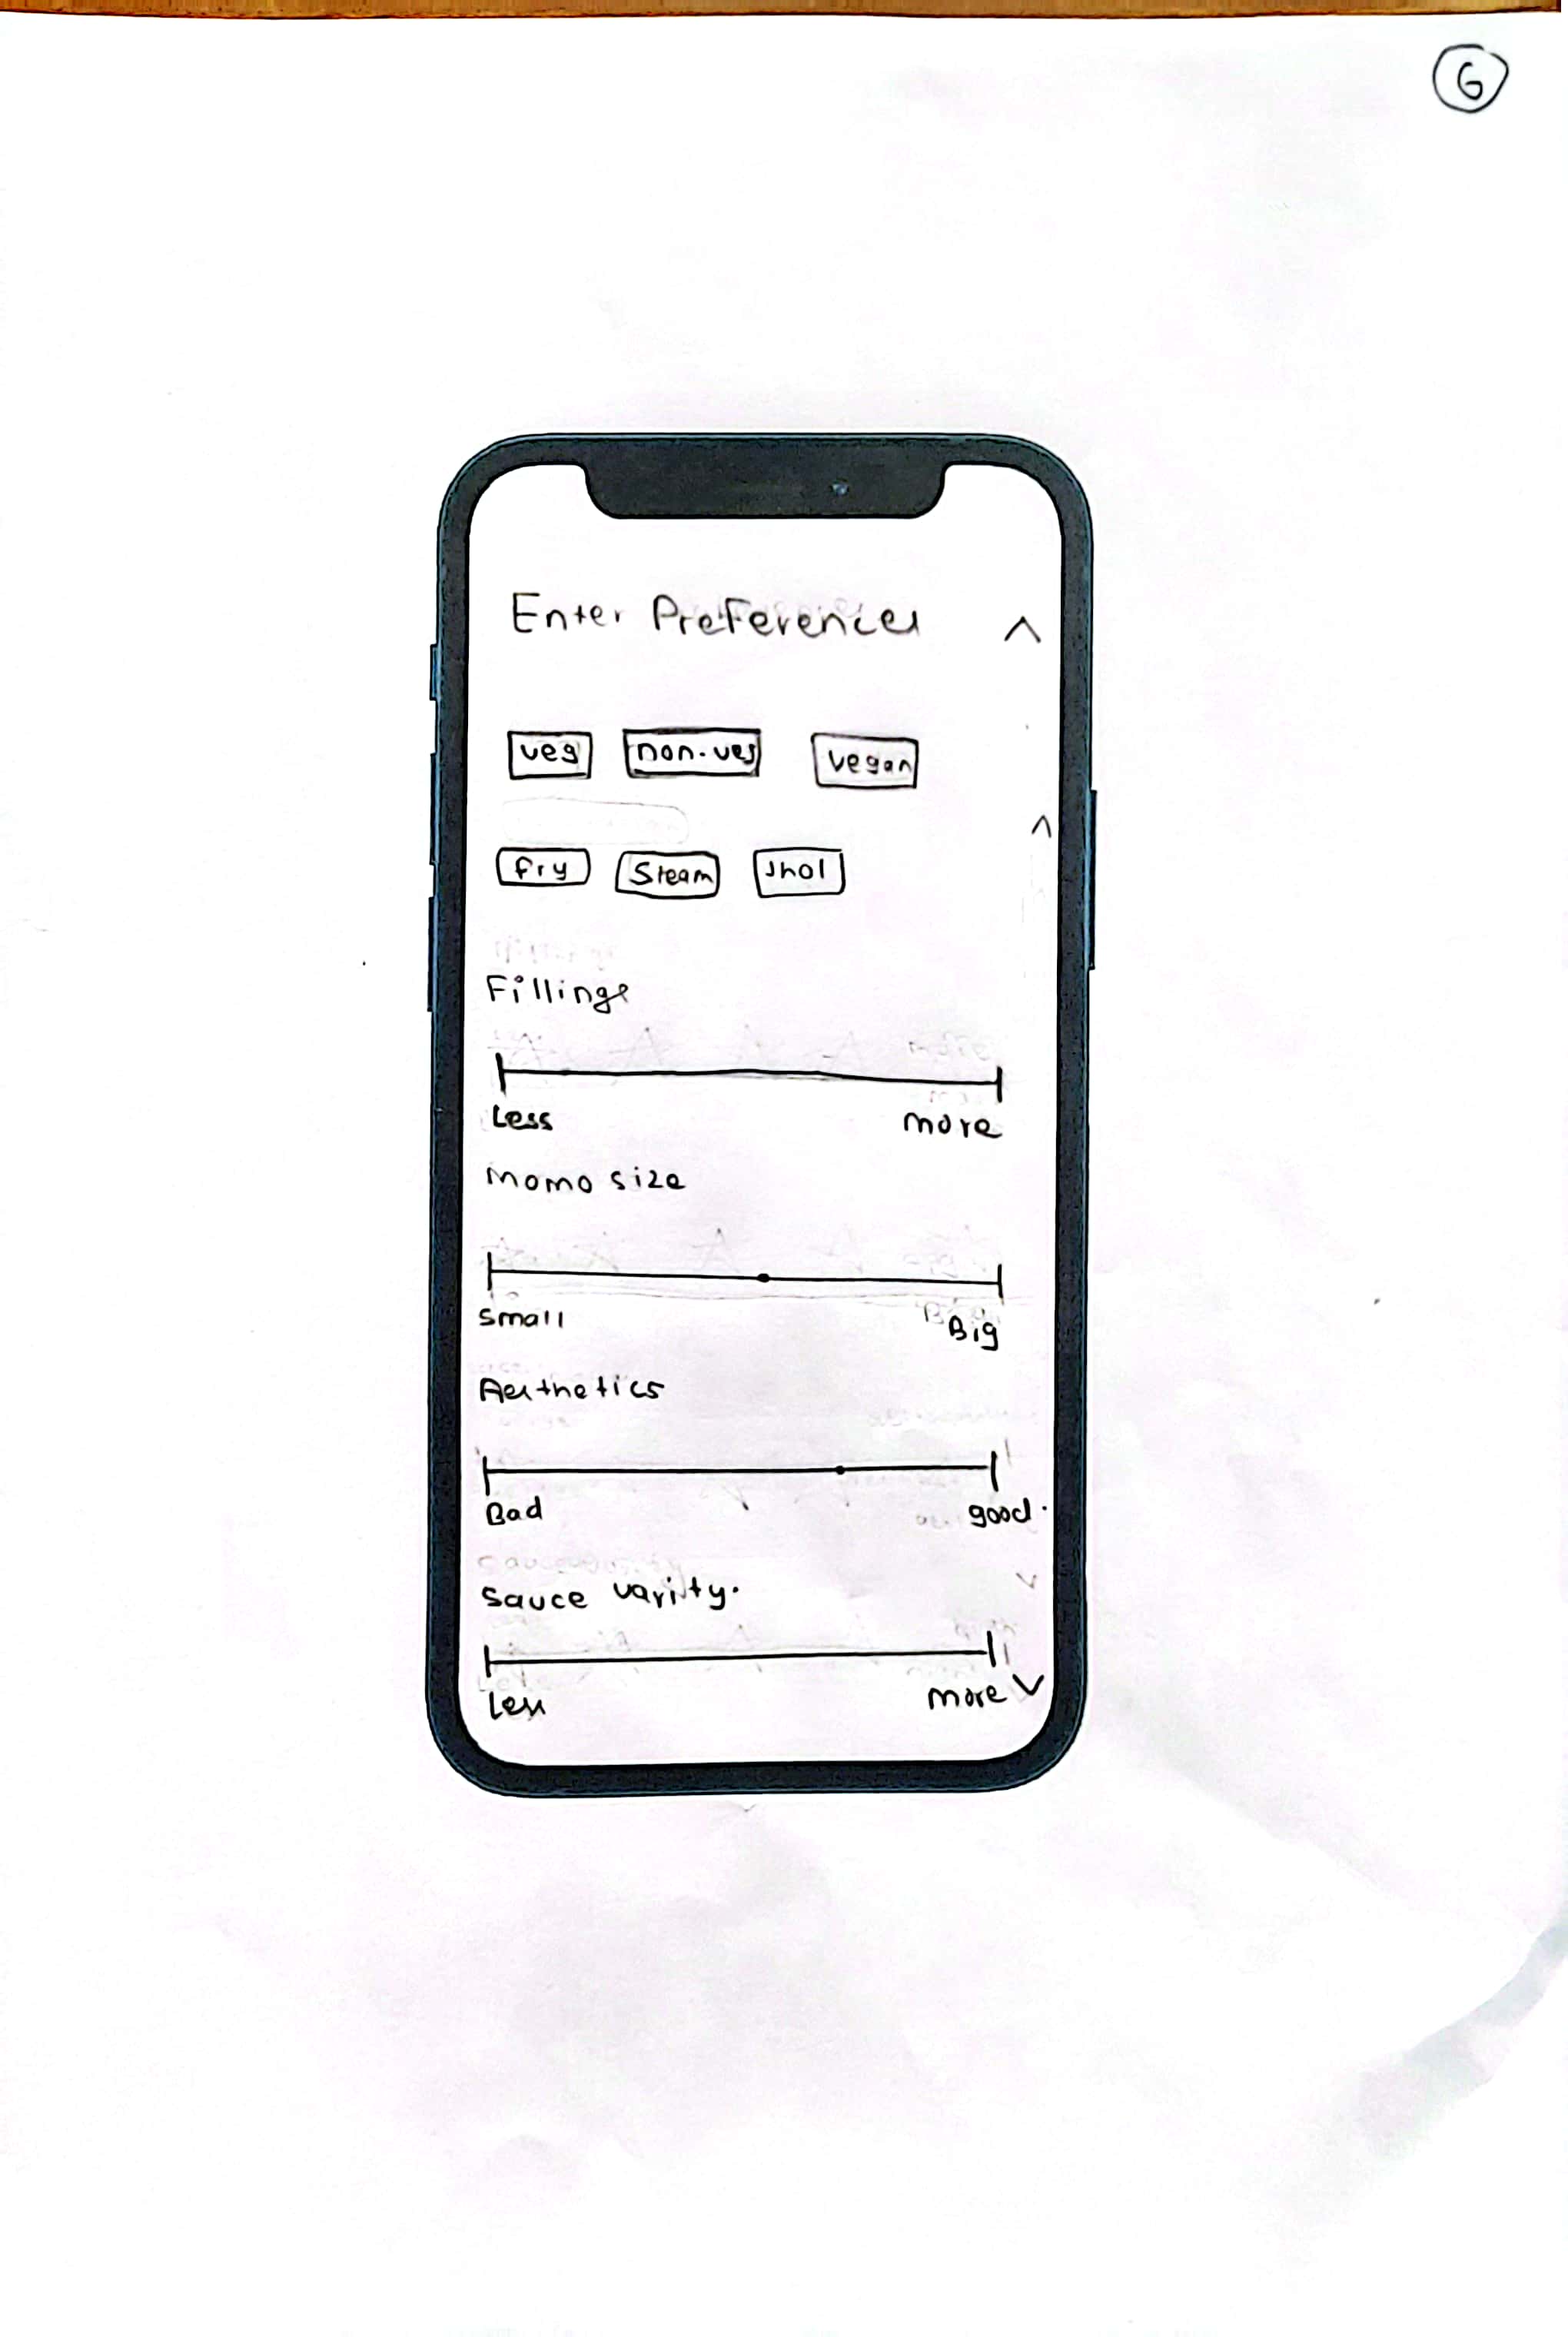 6
Enter Preferences
veg non-veg vegan
fry Steam Jhol
Fillings
Less more
momo size
Small Big
Aesthetics
Bad good.
Sauce varity.
Less more